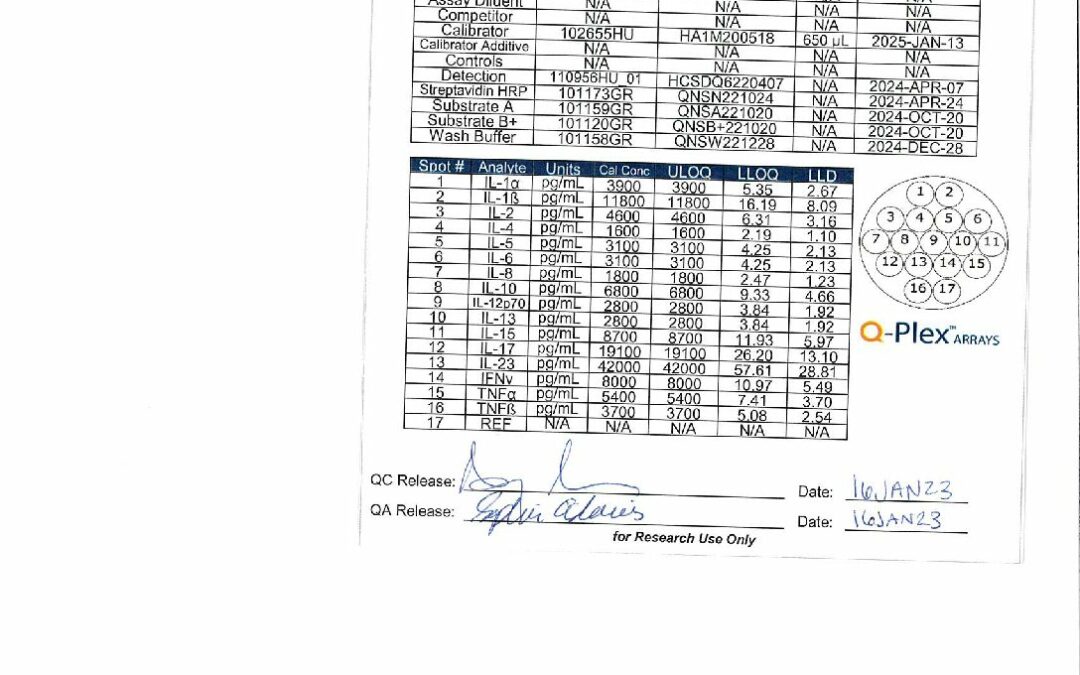 Assay Diluent N/A N/A N/A N/A
Competitor N/A N/A N/A N/A
Calibrator 102655HU HA1M200518 650 µL 2025-JAN-13
Calibrator Additive N/A N/A N/A N/A
Controls N/A N/A N/A N/A
Detection 110956HU_01 HCSDQ6220407 N/A 2024-APR-07
Streptavidin HRP 101173GR QNSN221024 N/A 2024-APR-24
Substrate A 101159GR QNSA221020 N/A 2024-OCT-20
Substrate B+ 101120GR QNSB+221020 N/A 2024-OCT-20
Wash Buffer 101158GR QNSW221228 N/A 2024-DEC-28
Spot # Analyte Units Cal Conc ULOQ LLOQ LLD
1 IL-1α pg/mL 3900 3900 5.35 2.67
2 IL-1ß pg/mL 11800 11800 16.19 8.09
3 IL-2 pg/mL 4600 4600 6.31 3.16
4 IL-4 pg/mL 1600 1600 2.19 1.10
5 IL-5 pg/mL 3100 3100 4.25 2.13
6 IL-6 pg/mL 3100 3100 4.25 2.13
7 IL-8 pg/mL 1800 1800 2.47 1.23
8 IL-10 pg/mL 6800 6800 9.33 4.66
9 IL-12p70 pg/mL 2800 2800 3.84 1.92
10 IL-13 pg/mL 2800 2800 3.84 1.92
11 IL-15 pg/mL 8700 8700 11.93 5.97
12 IL-17 pg/mL 19100 19100 26.20 13.10
13 IL-23 pg/mL 42000 42000 57.61 28.81
14 IFNγ pg/mL 8000 8000 10.97 5.49
15 TNFα pg/mL 5400 5400 7.41 3.70
16 TNFß pg/mL 3700 3700 5.08 2.54
17 REF N/A N/A N/A N/A N/A
1 2
3 4 5 6
7 8 9 10 11
12 13 14 15
16 17
Q-Plex™ ARRAYS
QC Release: Date: 16JAN23
QA Release: Date: 16JAN23
for Research Use Only